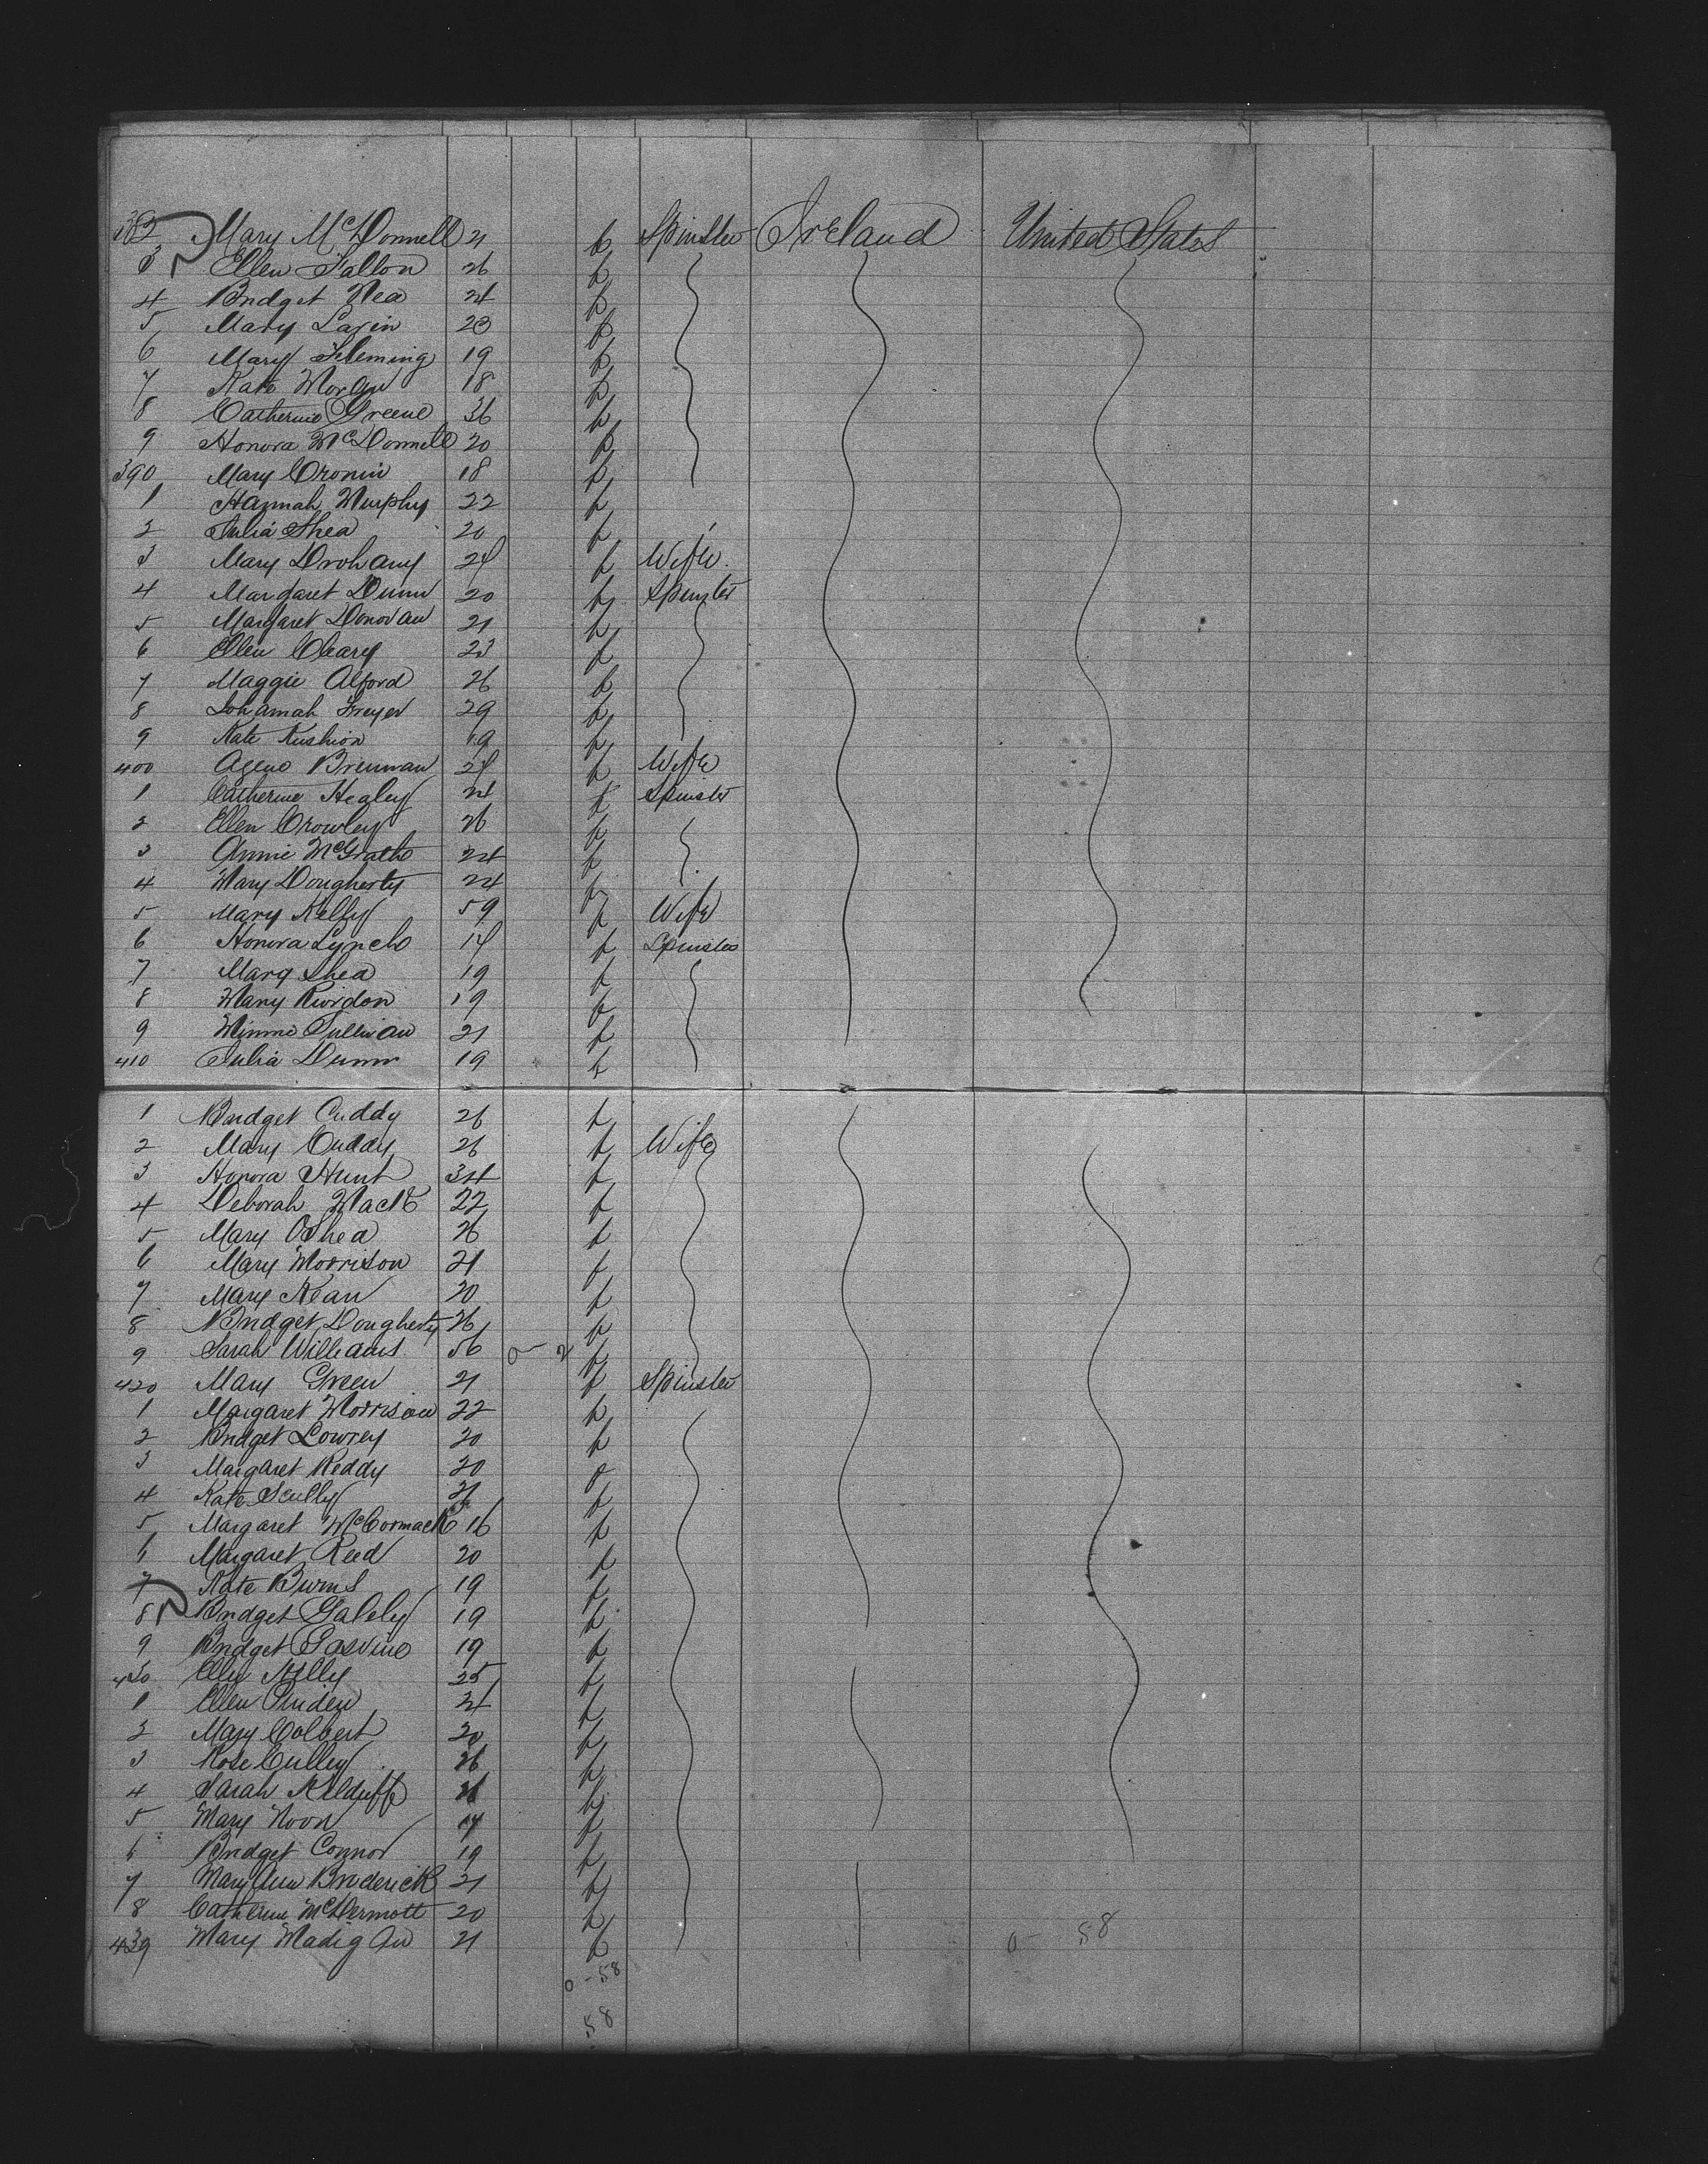 382 Mary McDonnell 21 f Spinster Ireland United States
3 Ellen Fallon 26 f
4 Bridget Nea 24 f
5 Mary Lavin 23 f
6 Mary Fleming 19 f
7 Kate Moran 18 f
8 Catherine Greene 36 f
9 Honora McDonnell 20 f
390 Mary Cronin 18 f
1 Hannah Murphy 22 f
2 Julia Shea 20 f
3 Mary Drohany 24 f Wife
4 Margaret Dunn 20 f Spinster
5 Margaret Donovan 21 f
6 Ellen Cleary 23 f
7 Maggie Alford 26 f
8 Johanah Freyer 29 f
9 Kate Kushion 19 f
400 Brennan f Wife
1 Catherine Healey 24 f Spinster
2 Ellen Crowley 26 f
3 Annie McGrath 24 f
4 Mary Dougherty 24 f
5 Mary Kelly 59 f Wife
6 Honora Lynch f Spinster
7 Mary Shea 19 f
8 Mary Riordon 19 f
9 Minnie Sullivan 21 f
410 Julia Dunn 19 f
1 Bridget Cuddy 26 f
2 Mary Cuddy 26 f Wife
3 Honora Hunt 34 f
4 Deborah Mack 22 f
5 Mary OShea 26 f
6 Mary Morrison 21 f
7 Mary Kean 20 f
8 Bridget Dougherty 26 f
9 Sarah Williams 56 0 - 2 f
420 Mary Green 21 f Spinster
1 Margaret Morrison 22 f
2 Bridget Lowrey 20 f
3 Margaret Reddy 20 f
4 Kate Scully 21 f
5 Margaret McCormack 16 f
6 Margaret Reed 20 f
7 Kate Burns 19 f
8 Bridget 19 f
9 Bridget 19 f
430 Kelly 25 f
1 Ellen 24 f
2 Mary Colbert 20 f
3 Rose Culley 26 f
4 Sarah Kilduff f
5 Mary Noon f
6 Bridget Connor 19 f
7 Mary Ann Broderick 21 f
8 Catherine McDermott 20 f
439 Mary Madigan 21 f 0 - 58
0 - 58
58